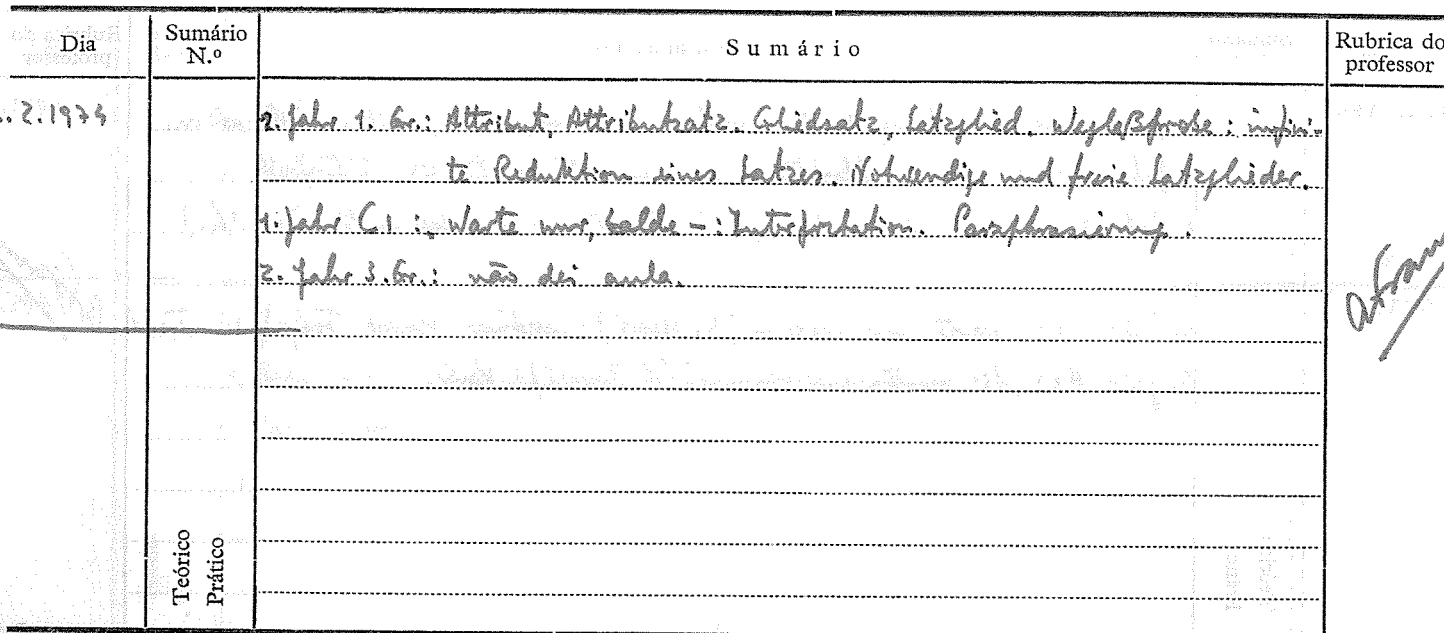 Dia
Sumário N.º
Sumário
Rubrica do professor
.2.1974
2. Jahr 1. Gr.: Attribut, Attributsatz. Gliedsatz, Satzglied. Weglaßprobe: infini-
te Reduktion eines Satzes. Notwendige und freie Satzglieder.
1. Jahr C1: „Warte nur, balde –: Interpretation. Paraphrasierung.
2. Jahr 3. Gr.: não dei aula.
Teórico
Prático